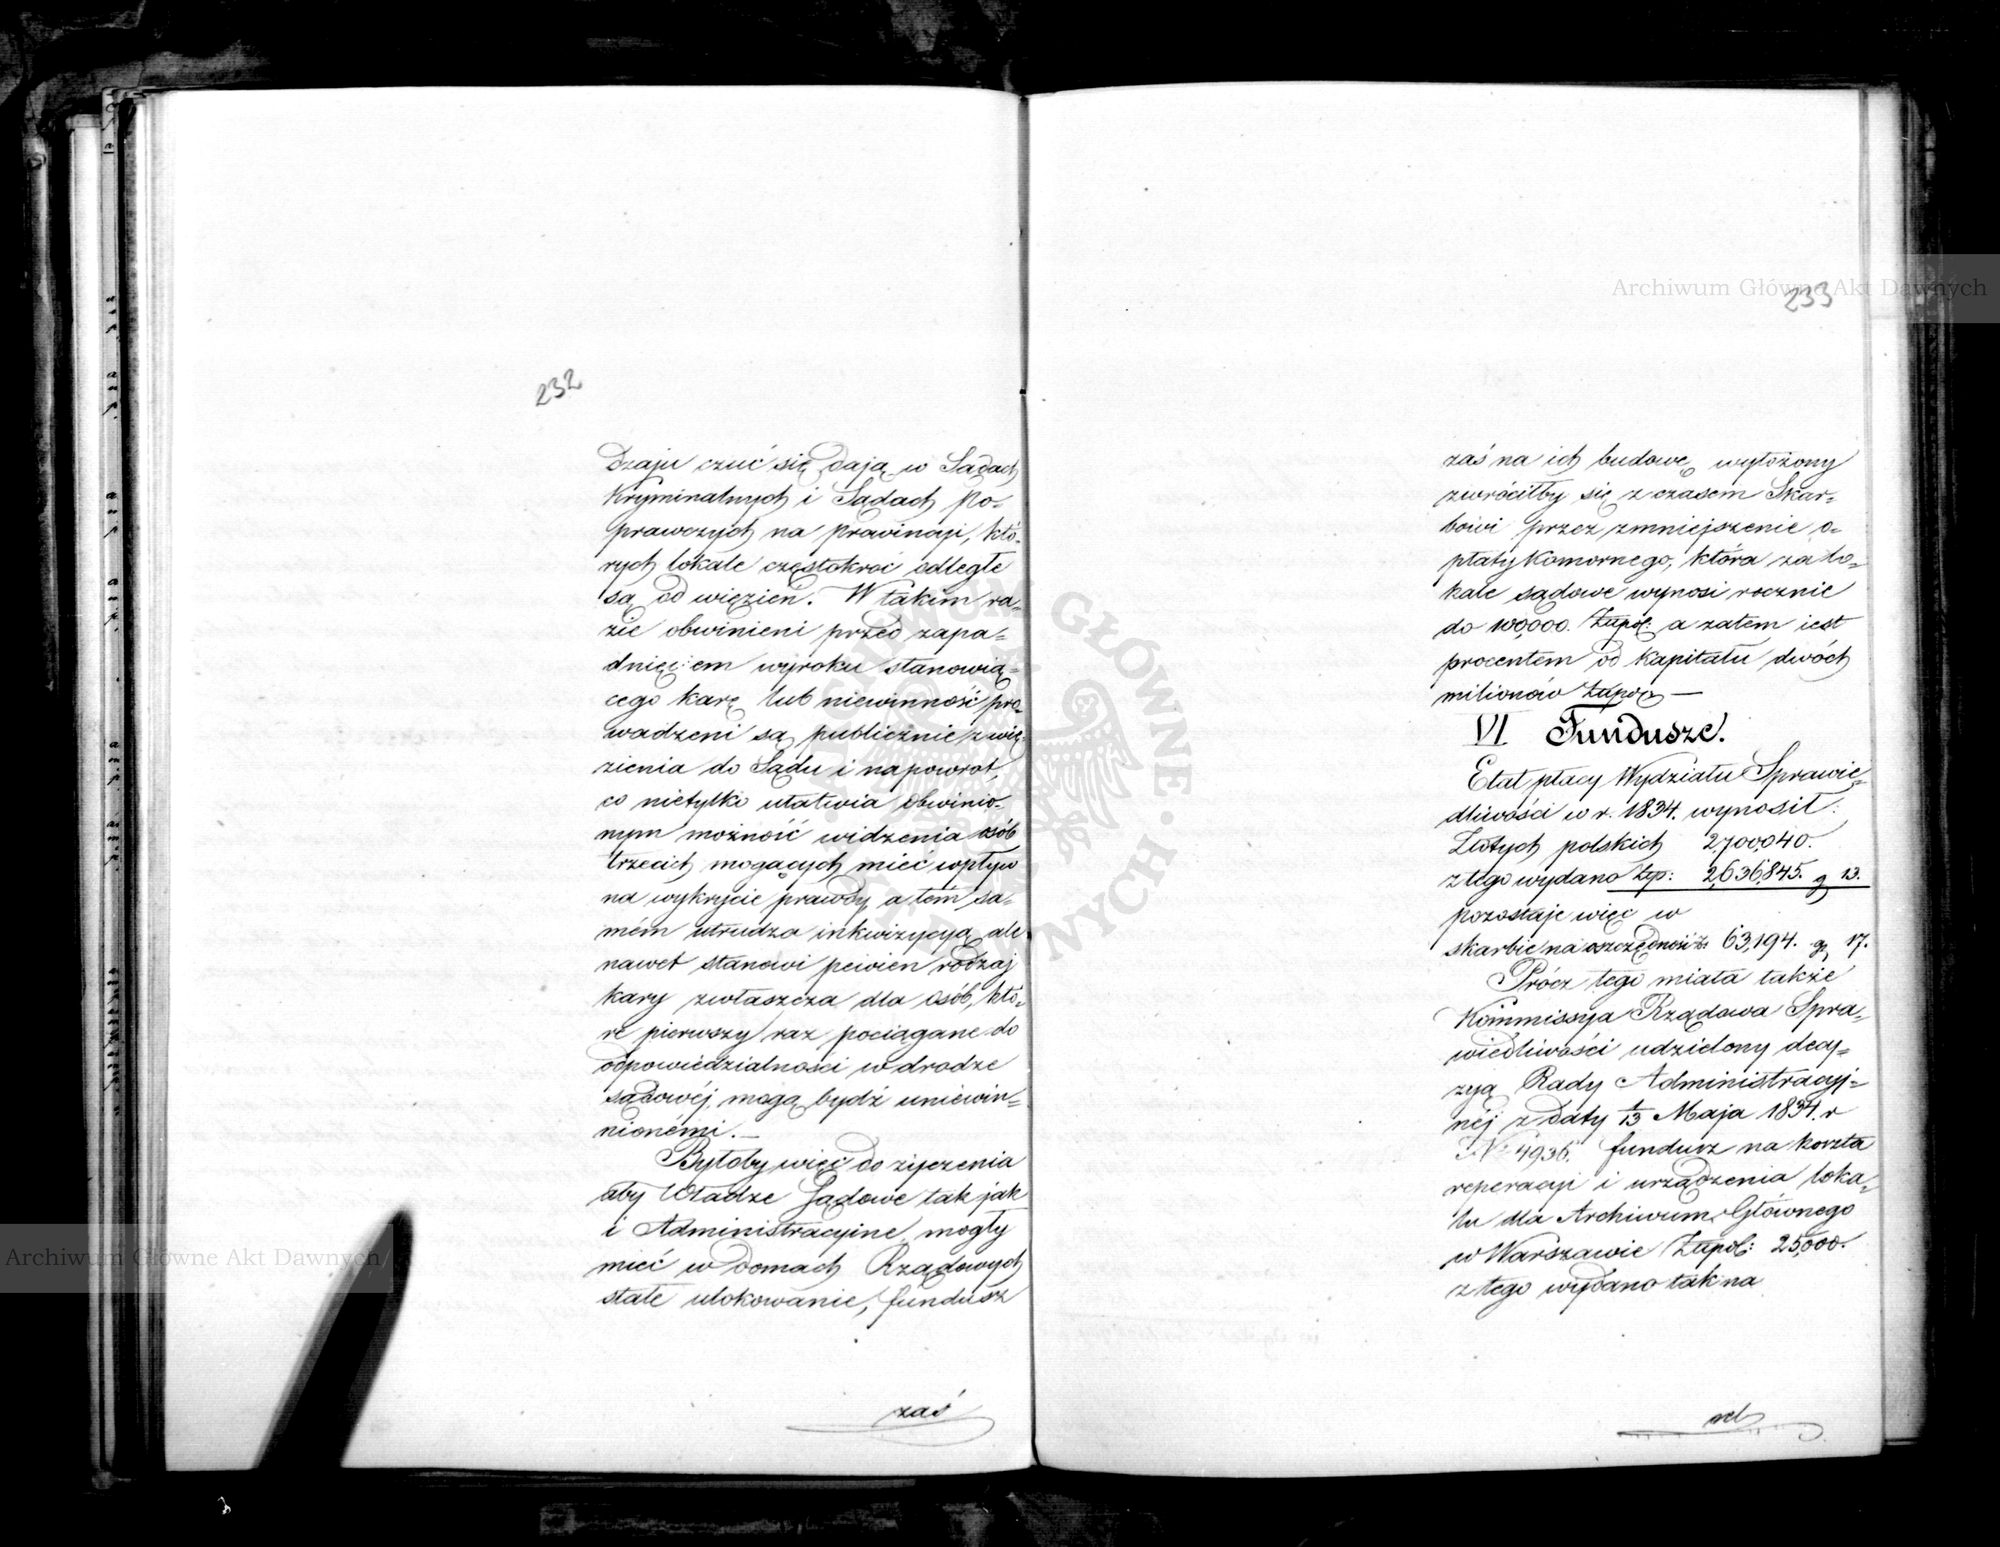 232
dzaju czuć się dają w Sądach
Kryminalnych i Sądach Po-
prawczych na prowincyi, któ-
rych lokale częstokroć odległe
są od więzień. W takim ra-
zie obwinieni przed zapa-
dnięciem wyroku stanowią-
cego karę lub niewinność pro-
wadzeni są publicznie z wię-
zienia do Sądu i napowrot,
co nietylko ułatwia obwinio-
nym możność widzenia osób
trzecich mogących mieć wpływ
na wykrycie prawdy, a tem sa-
mém utrudza inkwizycyą, ale
nawet stanowi pewien rodzaj
kary zwłaszcza dla osób, któ-
re pierwszy raz pociągane do
odpowiedzialności w drodze
sądowéj, mogą bydź uniewin-
nionémi. —
Byłoby więc do życzenia
aby Władze Sądowe tak jak
i Administracyjne, mogły
mieć w domach Rządowych
stałe ulokowanie, fundusz
zaś
233
zaś na ich budowę wyłożony
zwróciłby się z czasem Skar-
bowi przez zmniejszenie o-
płaty Komornego, która za lo-
kale sądowe wynosi rocznie
do 100,000. Złtpol: a zatem jest
procentem od Kapitału dwóch
milionów —
VI Fundusze.
Etat płacy Wydziału Sprawie-
dliwości w r. 1834. wynosił:
Złotych polskich 2,700,040.
z tego wydano Złp: 2,636,845. g 13.
pozostaje więc w
skarbie na oszczędność Zł 63,194. g. 17.
Prócz tego miała także
Kommissya Rządowa Spra-
wiedliwości udzielony decy-
zyą Rady Administracyj-
néj z daty 1/13 Maja 1834. r
N 4936. fundusz na koszta
reperacyi i urządzenia loka-
lu dla Archiwum Głównego
w Warszawie Złtpol: 25,000.
z tego wydano tak na
re
Archiwum Główne Akt Dawnych
Archiwum Główne Akt Dawnych